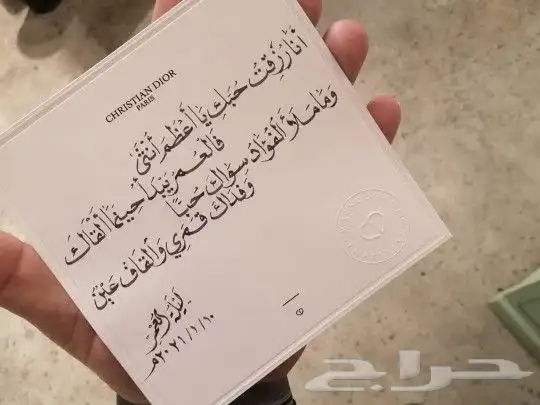 CHRISTIAN DIOR
PARIS
أَنَا رُزِقتُ حُبكِ يَا أَعْظَمَ أُنثَى
فَالعُمر يَبدَأ حِينمَا أَلقَاكَ
وَمَا مَلَأ الفُؤَادَ سِوَاك حُبًّا
وَفِدَاك قَمَرِي وَالقَاف عَيْنُ
لَيلَة العُمْر
٢٠٢١/٦/١٠م
حراج